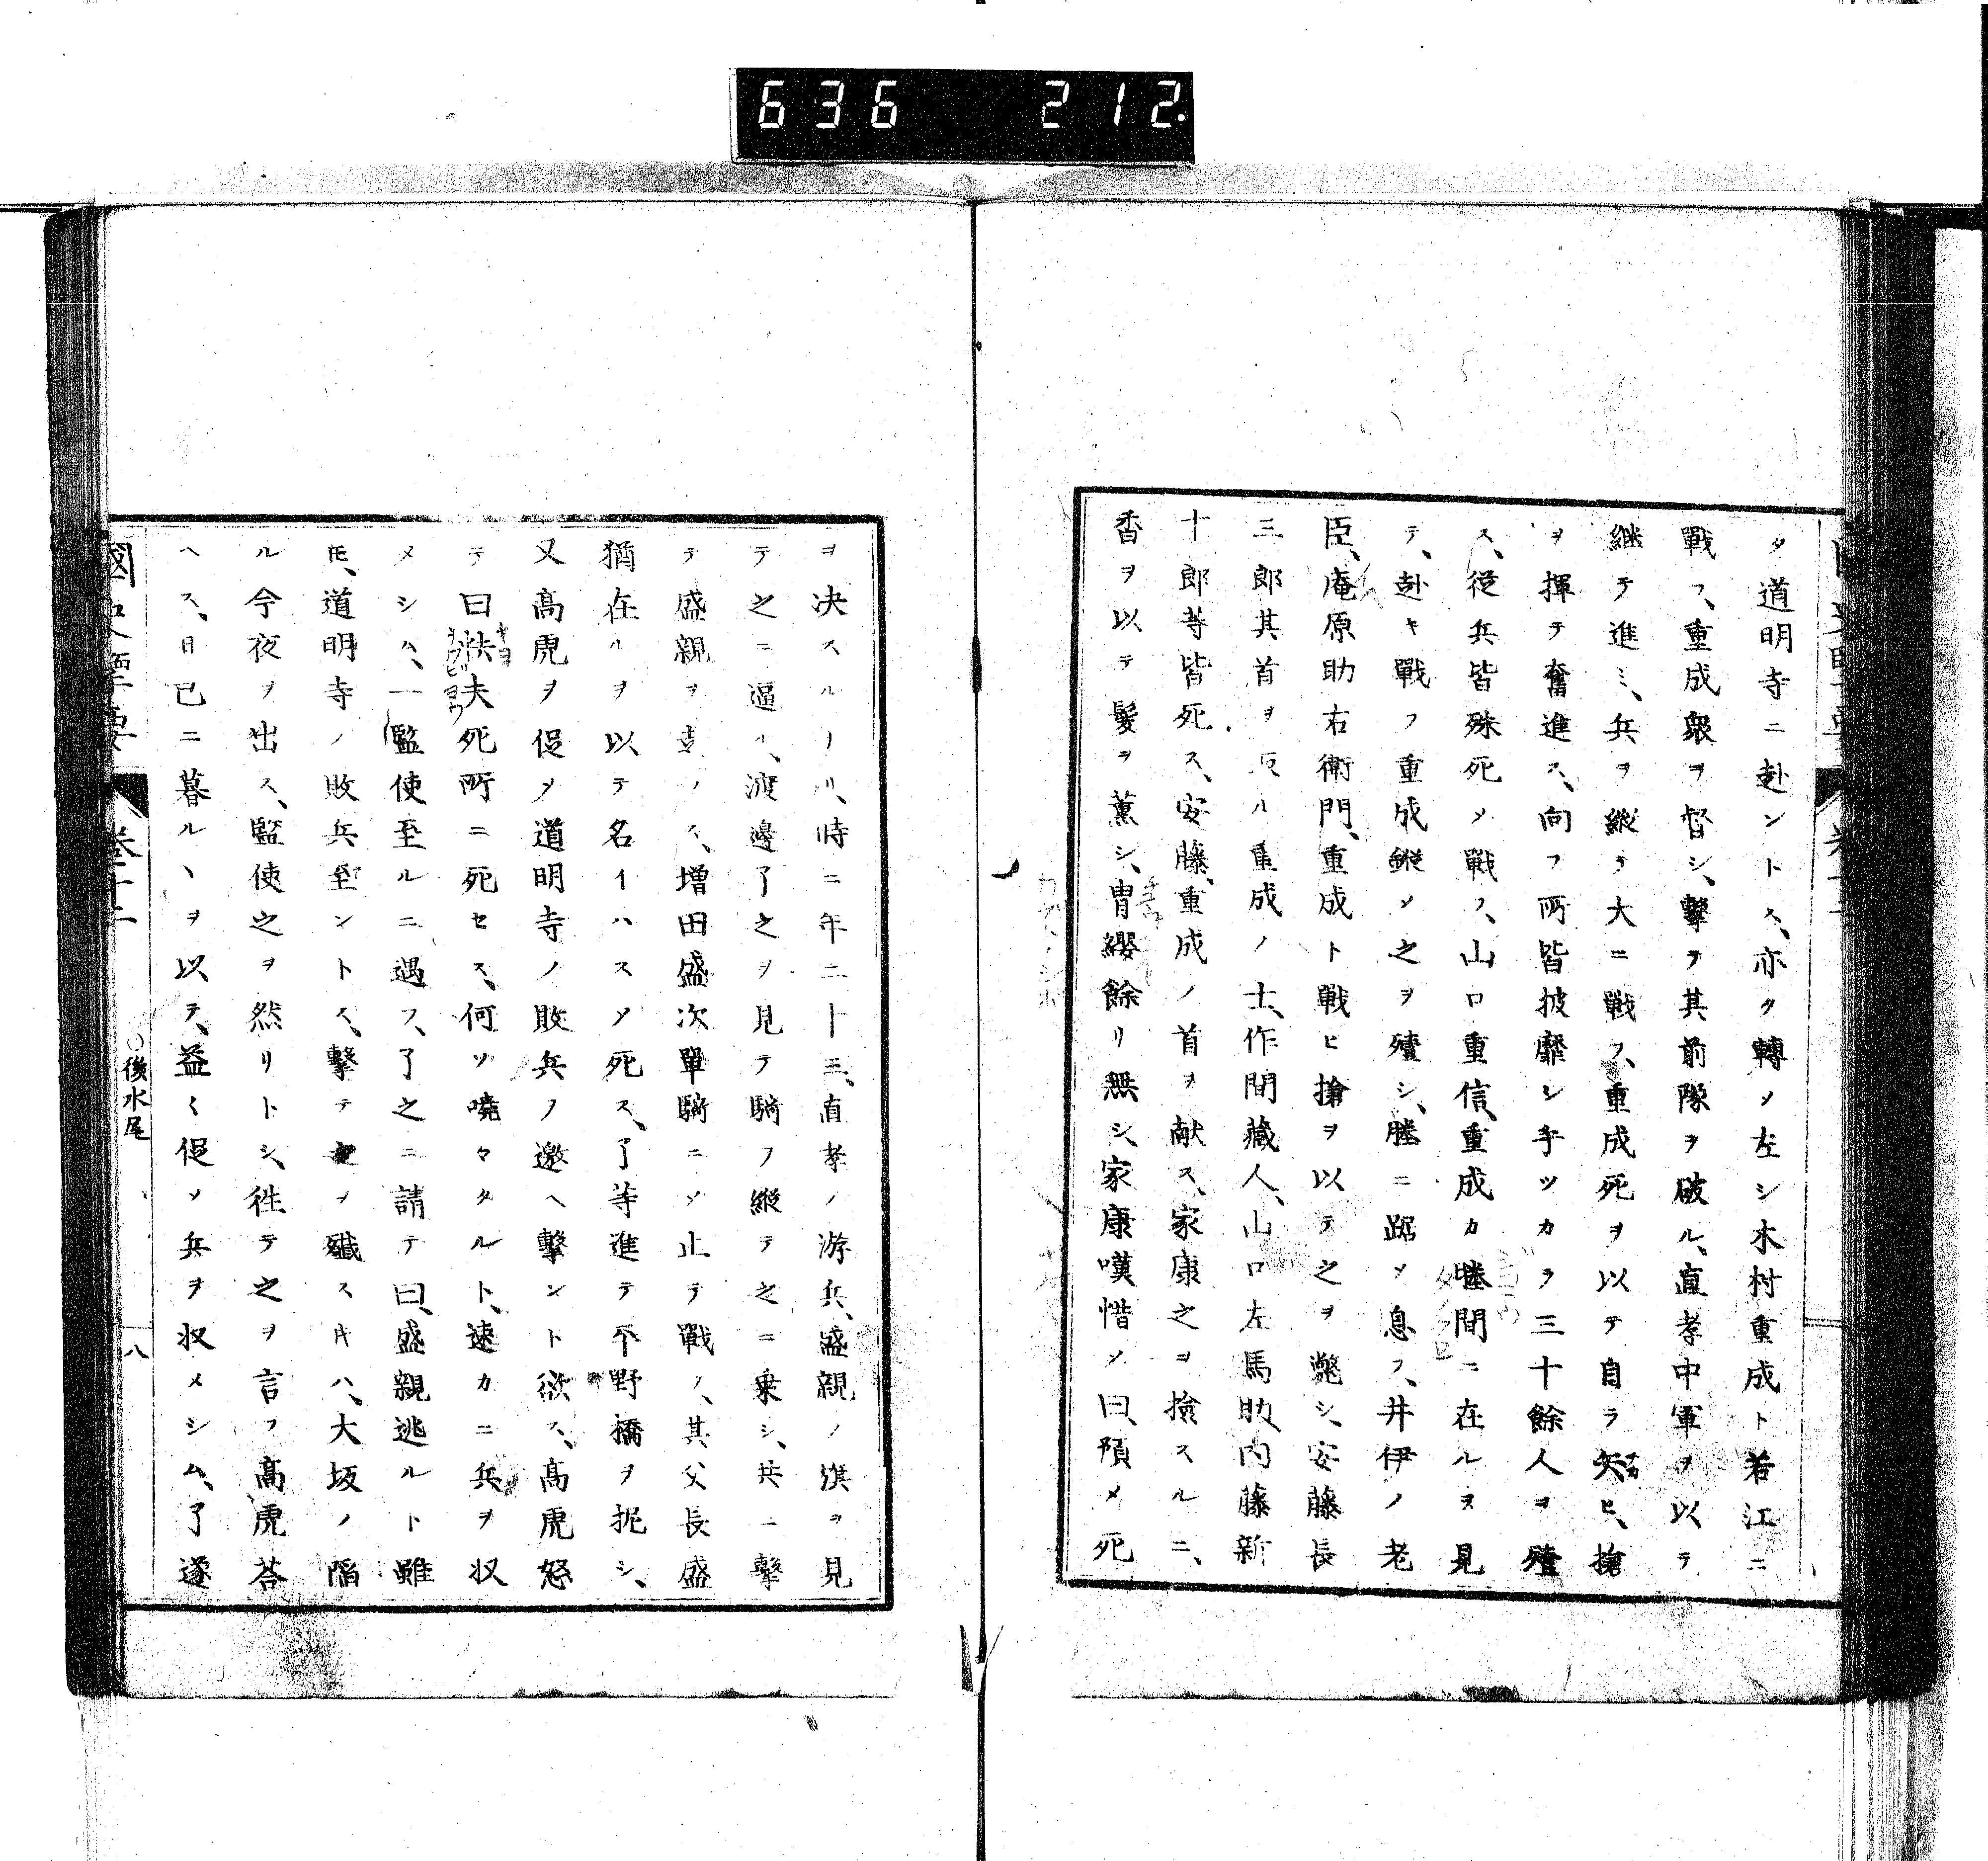 636 212.
タ道明寺ニ赴ントス、亦タ轉ノ左シ木村重成ト若江ニ
戰フ、重成衆ヲ督シ、擊テ其前隊ヲ破ル、直孝中軍ヲ以テ
継テ進ミ、兵ヲ縱テ大ニ戰フ、重成死ヲ以テ自ラ矢ヒ、搶
ヲ揮テ奮進ス、向フ所皆披靡シ手ツカラ三十餘人ヲ殪
ス、從兵皆殊死メ戰フ、山口重信、重成カ塍間ニ在ルヲ見
テ、赴キ戰フ重成縱ソ之ヲ殪シ、塍ニ踞メ息フ、井伊ノ老
臣、庵原助右衛門、重成ト戰ヒ搶ヲ以テ之ヲ斃シ、安藤長
三郎其首ヲ取ル重成ノ士、作間藏人、山口左馬助、内藤新
十郎等皆死ス、安藤、重成ノ首ヲ献ス、家康之ヲ撿スルニ、
香ヲ以テ髮ヲ薫シ、冑纓餘リ無シ、家康嘆惜ソ曰、預メ死
ヲ决スルノリ、時ニ年二十三、直孝ノ游兵、盛親ノ旗ヲ見
テ之ニ逼ル、渡邊了之ヲ見テ騎ヲ縱テ之ニ乗シ、共ニ擊
テ盛親ヲ走ノス、增田盛次單騎ニソ止テ戰フ、其父長盛
猶在ルヲ以テ名イハスソ死ス、了等進テ平野橋ヲ扼シ、
又髙虎ヲ促メ道明寺ノ敗兵ヲ邀ヘ擊ント欲ス、髙虎怒
テ曰怯夫死所ニ死セス、何ソ嘵マタルト、速カニ兵ヲ収
メシム、一監使至ルニ遇フ、了之ニ請テ曰、盛親逃ルト雖
モ、道明寺ノ敗兵至ントス、擊テヲ殲スキハ、大坂ノ陷
ル今夜ヲ出ス、監使之ヲ然リトシ、徃テ之ヲ言フ髙虎荅
ヘス、日已ニ暮ルヽヲ以テ、益く促ソ兵ヲ収メシム、了遂
國史 卷十二 ○後水尾 八